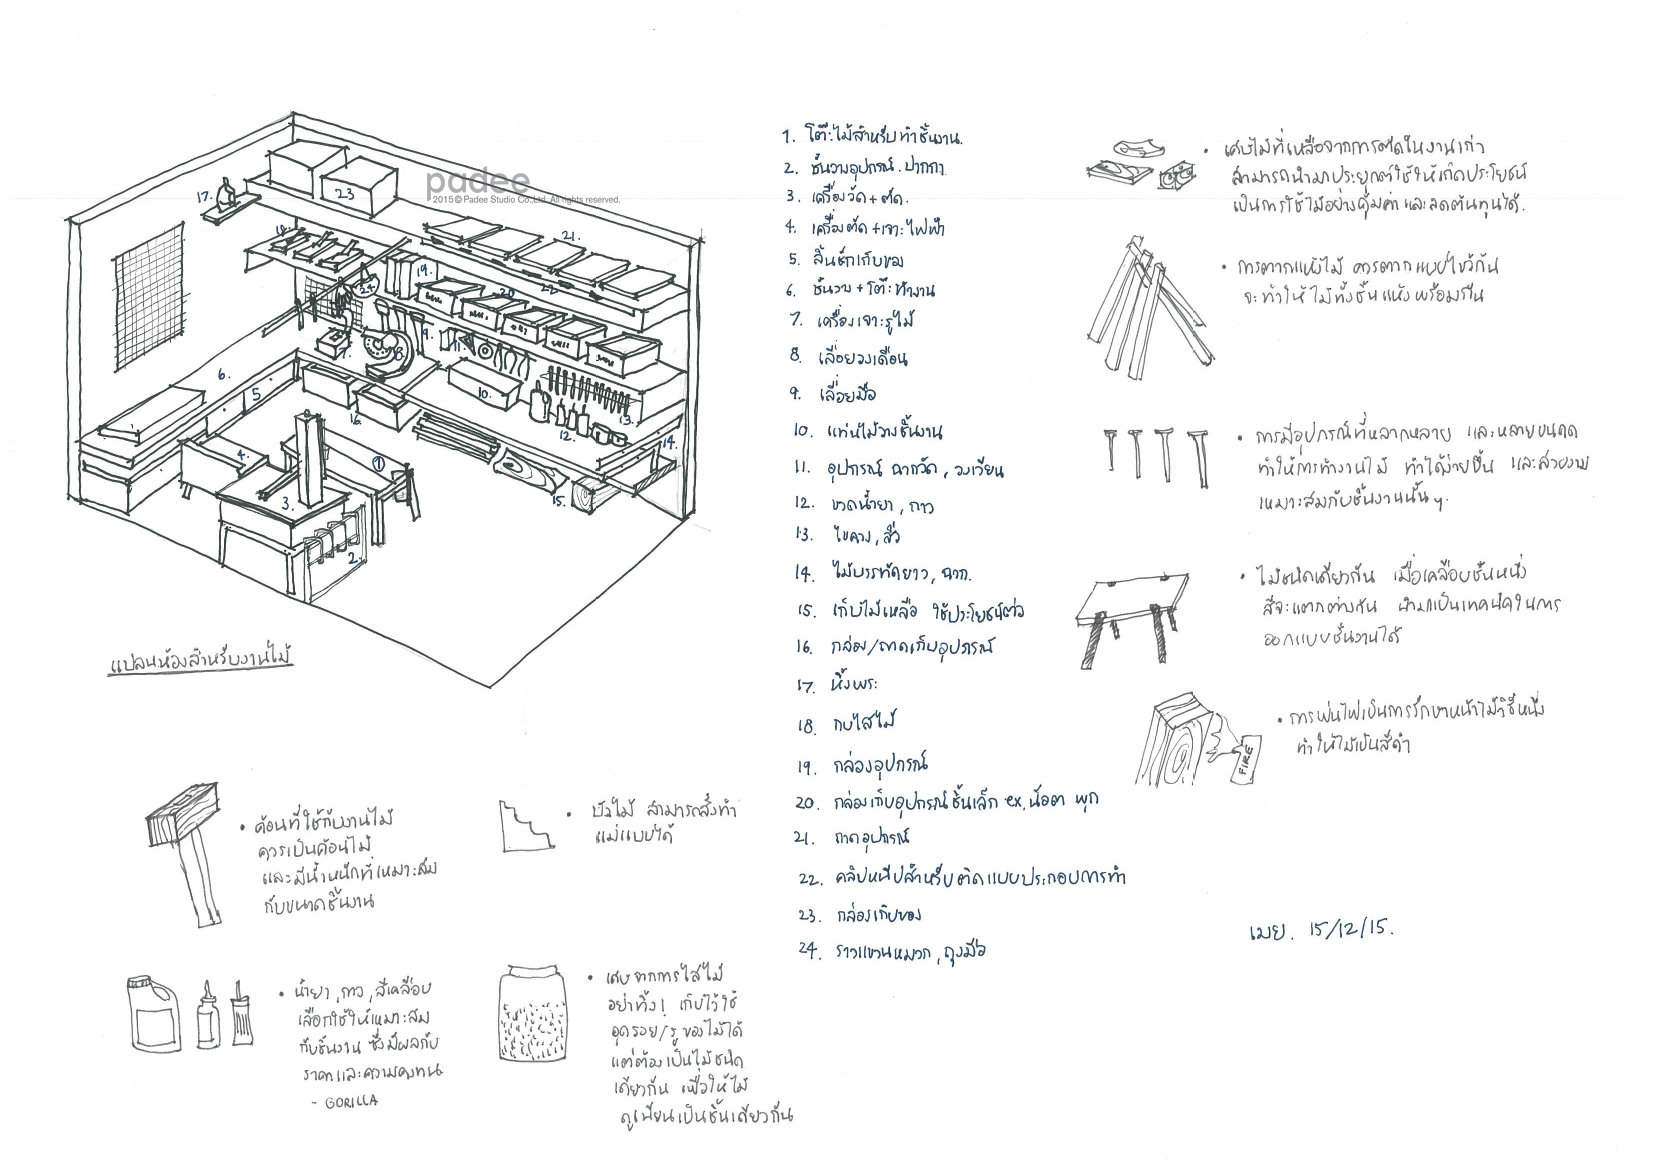 padee
2015 © Padee Studio Co.,Ltd. All rights reserved.
แปลนห้องสำหรับงานไม้
1. โต๊ะไม้สำหรับทำชิ้นงาน.
2. ชั้นวางอุปกรณ์. ปากกา
3. เครื่องวัด + ตัด.
4. เครื่องตัด + เจาะไฟฟ้า
5. ลิ้นชักเก็บของ
6. ชั้นวาง + โต๊ะทำงาน
7. เครื่องเจาะรูไม้
8. เลื่อยวงเดือน
9. เลื่อยมือ
10. แท่นไม้วางชิ้นงาน
11. อุปกรณ์ ฉากวัด, วงเวียน
12. ขวดน้ำยา, กาว
13. ไขควง, สิ่ว
14. ไม้บรรทัดยาว, ฉาก.
15. เก็บไม้เหลือ ใช้ประโยชน์ต่อ
16. กล่อง/ถาดเก็บอุปกรณ์
17. หิ้งพระ
18. กบไสไม้
19. กล่องอุปกรณ์
20. กล่องเก็บอุปกรณ์ชิ้นเล็ก ex. น็อต พุก
21. ถาดอุปกรณ์
22. คลิปหนีบสำหรับติดแบบประกอบการทำ
23. กล่องเก็บของ
24. ราวแขวนหมวก, ถุงมือ
• เศษไม้ที่เหลือจากการตัดในงานเก่า
สามารถนำมาประยุกต์ใช้ให้เกิดประโยชน์
เป็นการใช้ไม้อย่างคุ้มค่า และลดต้นทุนได้.
• การตากแห้งไม้ ควรตากแบบไขว้กัน
จะทำให้ไม้ทั้งชิ้นแห้งพร้อมกัน
• การมีอุปกรณ์ที่หลากหลาย และหลายขนาด
ทำให้การทำงานไม้ ทำได้ง่ายขึ้น และสวยงาม
เหมาะสมกับชิ้นงานนั้นๆ.
• ไม้ชนิดเดียวกัน เมื่อเคลือบชั้นหนึ่ง
สีจะแตกต่างกัน นำมาเป็นเทคนิคในการ
ออกแบบชิ้นงานได้
• การพ่นไฟเป็นการรักษาหน้าไม้วิธีหนึ่ง
ทำให้ไม้เป็นสีดำ
FIRE
• ค้อนที่ใช้กับงานไม้
ควรเป็นค้อนไม้
และมีน้ำหนักที่เหมาะสม
กับขนาดชิ้นงาน
• บัวไม้ สามารถสั่งทำ
แม่แบบได้
• น้ำยา, กาว, สีเคลือบ
เลือกใช้ให้เหมาะสม
กับชิ้นงาน ซึ่งมีผลกับ
ราคาและความคงทน
- GORILLA
• เศษจากการไสไม้
อย่าทิ้ง! เก็บไว้ใช้
อุดรอย/รูของไม้ได้
แต่ต้องเป็นไม้ชนิด
เดียวกัน เพื่อให้ไม้
ดูเนียนเป็นชิ้นเดียวกัน
เมย. 15/12/15.